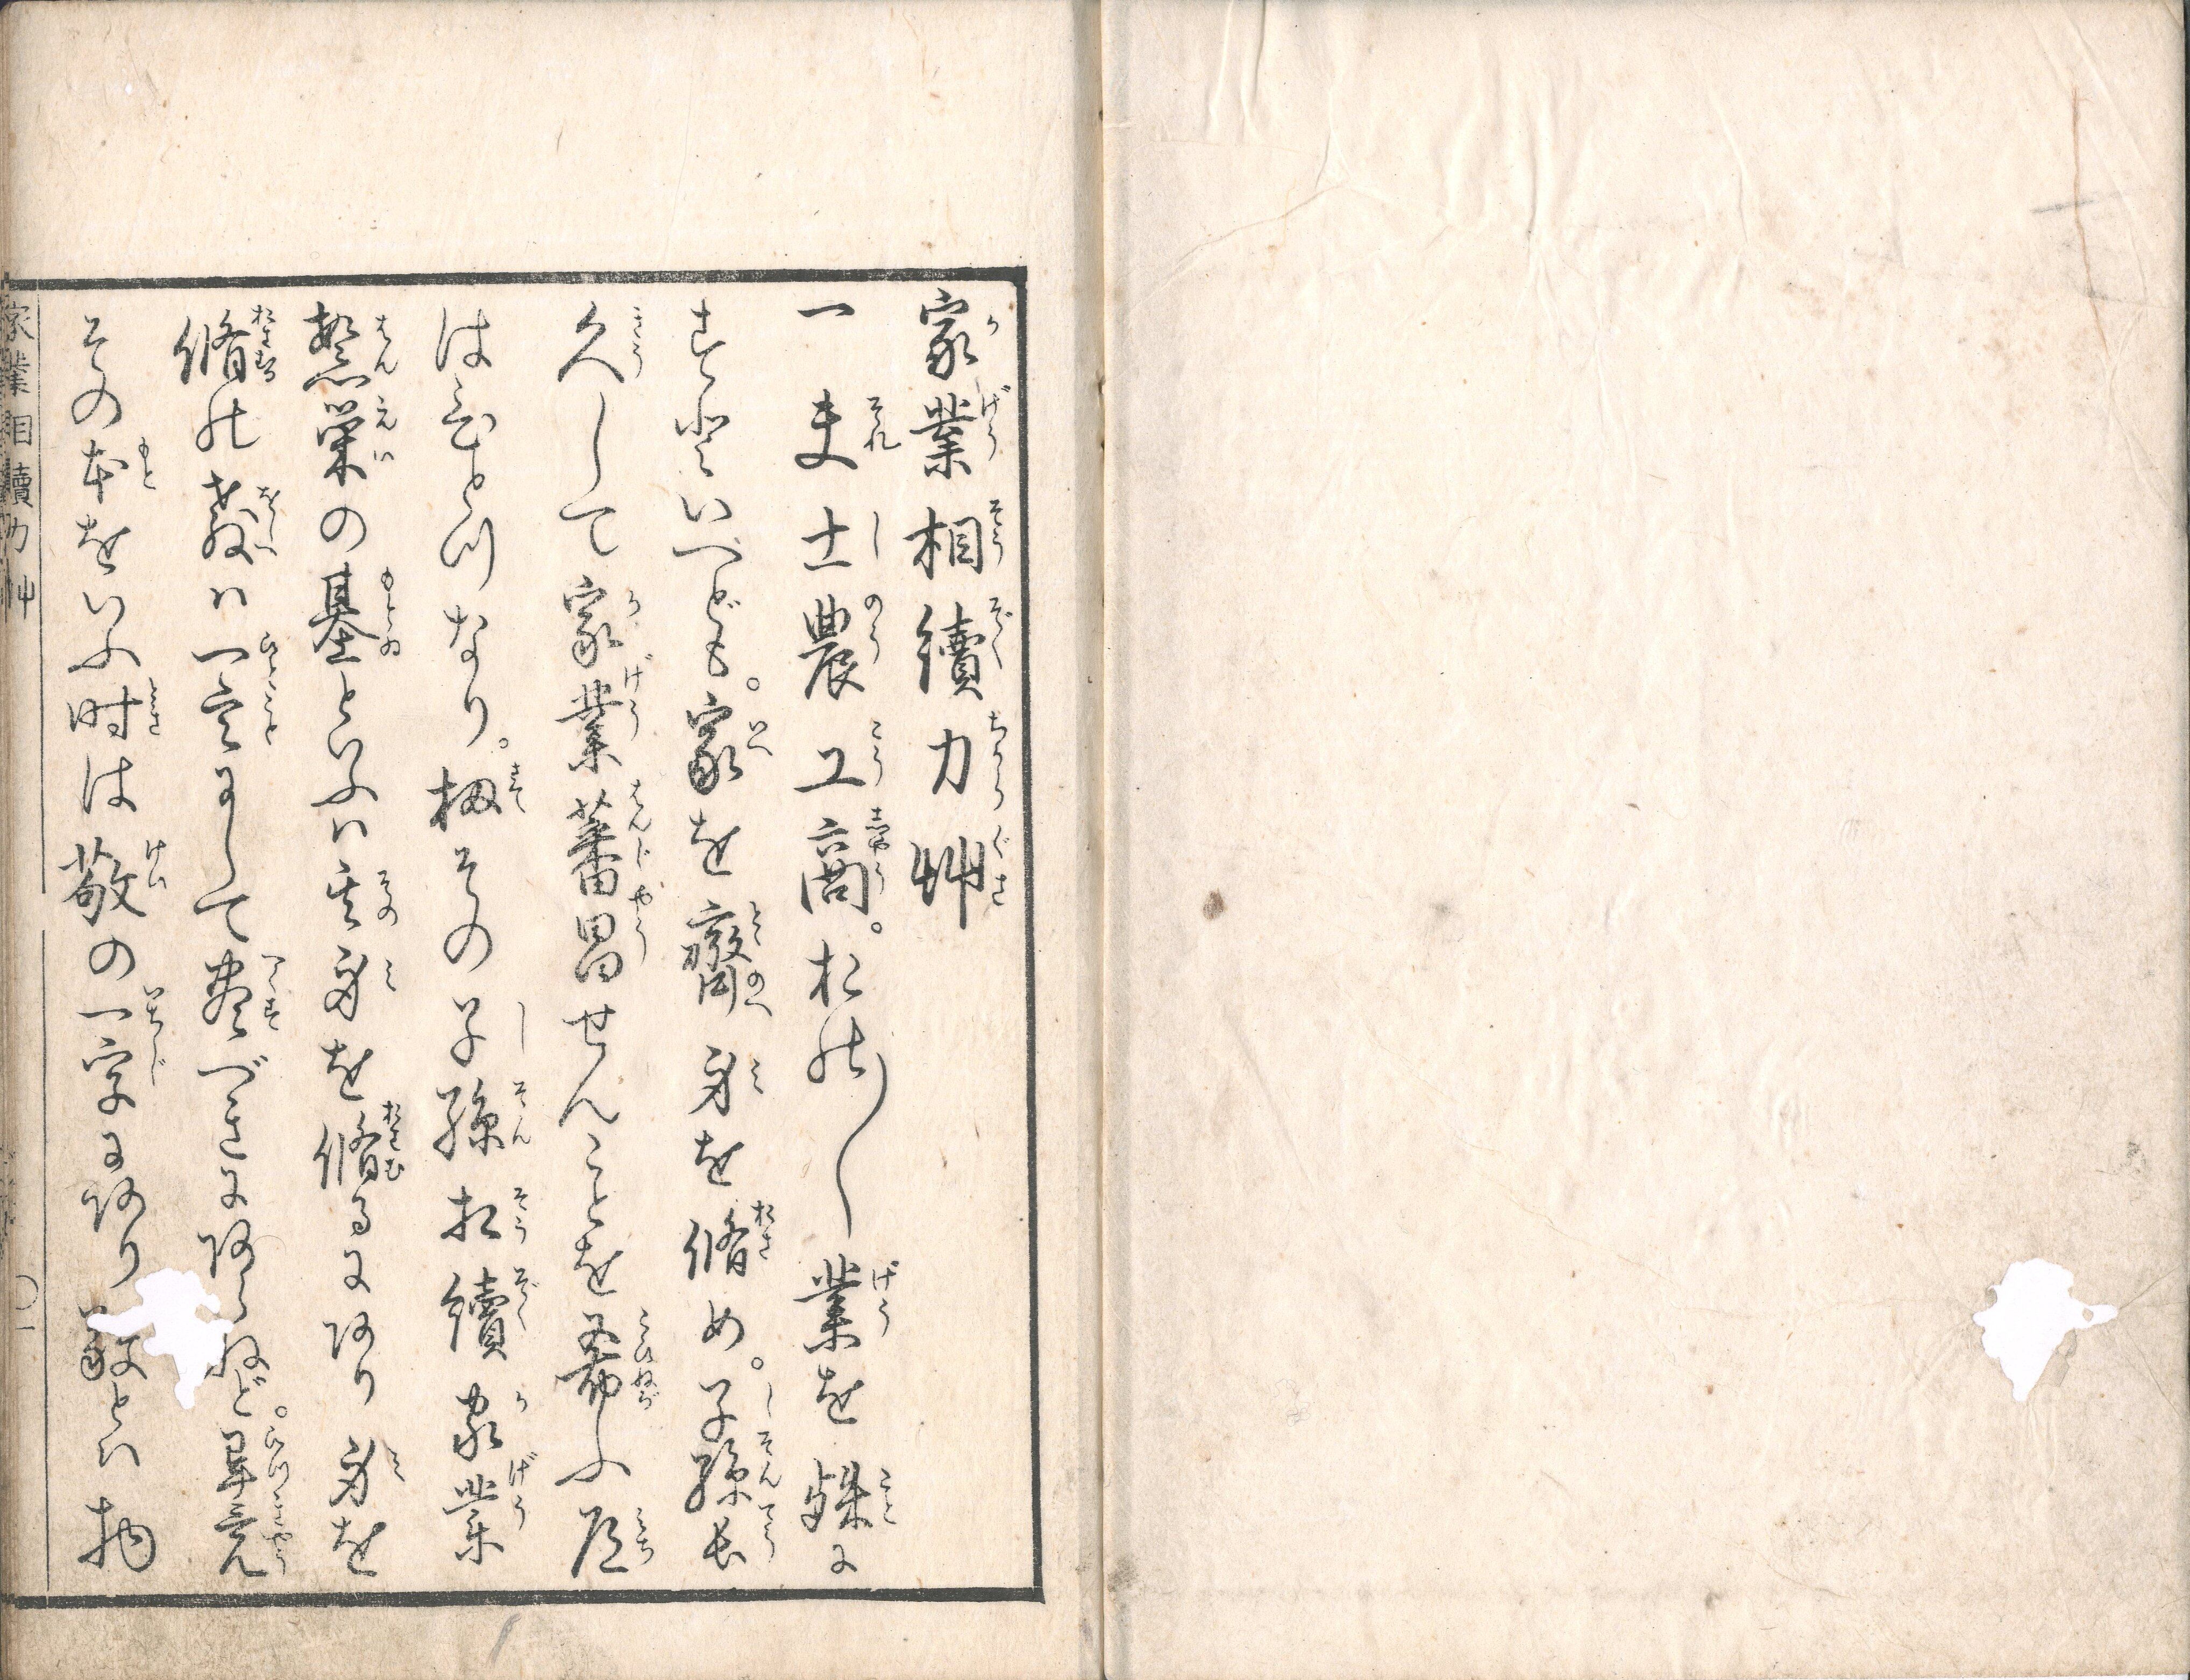 家業相續力艸
一夫士農工商。おのゝ〳〵業を殊に
すといへども。家を齊身を脩め。子孫長
久して家業蕃昌せんことを希ふ道
はひとつなり。扨その子孫相續家業
繁栄の基といふハ其身を脩るにあり身を
脩の教ハ一言にして盡づきにあらねど。畢竟
その本をいふ時は敬の一字にあり敬とハ物
家業相續力艸